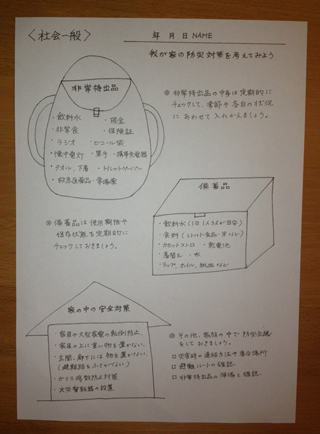 〈社会一般〉
年 月 日 NAME
我が家の防災対策を考えてみよう
非常持出品
・飲料水 ・現金
・非常食 ・保険証
・ラジオ ・ビニール袋
・懐中電灯 ・軍手 ・携帯充電器
・タオル、下着 ・トイレットペーパー
・救急医薬品・常備薬
※非常持出品の中身は定期的に
チェックして、季節や各自の状況
にあわせて入れかえましょう。
備蓄品
・飲料水(1日1人3ℓが目安)
・食料(レトルト食品・米など)
・カセットコンロ ・乾電池
・着替え ・水
・ラップ、ホイル、紙皿など
※備蓄品は使用期限や
保存状態を定期的に
チェックしておきましょう。
家の中の安全対策
・家具の大型家電の転倒防止
・家具の上に重い物を置かない。
・玄関、廊下には物を置かない。
(避難路をふさがない)
・ガラス飛散防止対策
・火災警報器の設置
※その他、家族の中で防災会議
をしておきましょう。
□災害時の連絡方法や集合場所
□避難ルートの確認
□非常持出品の準備と確認